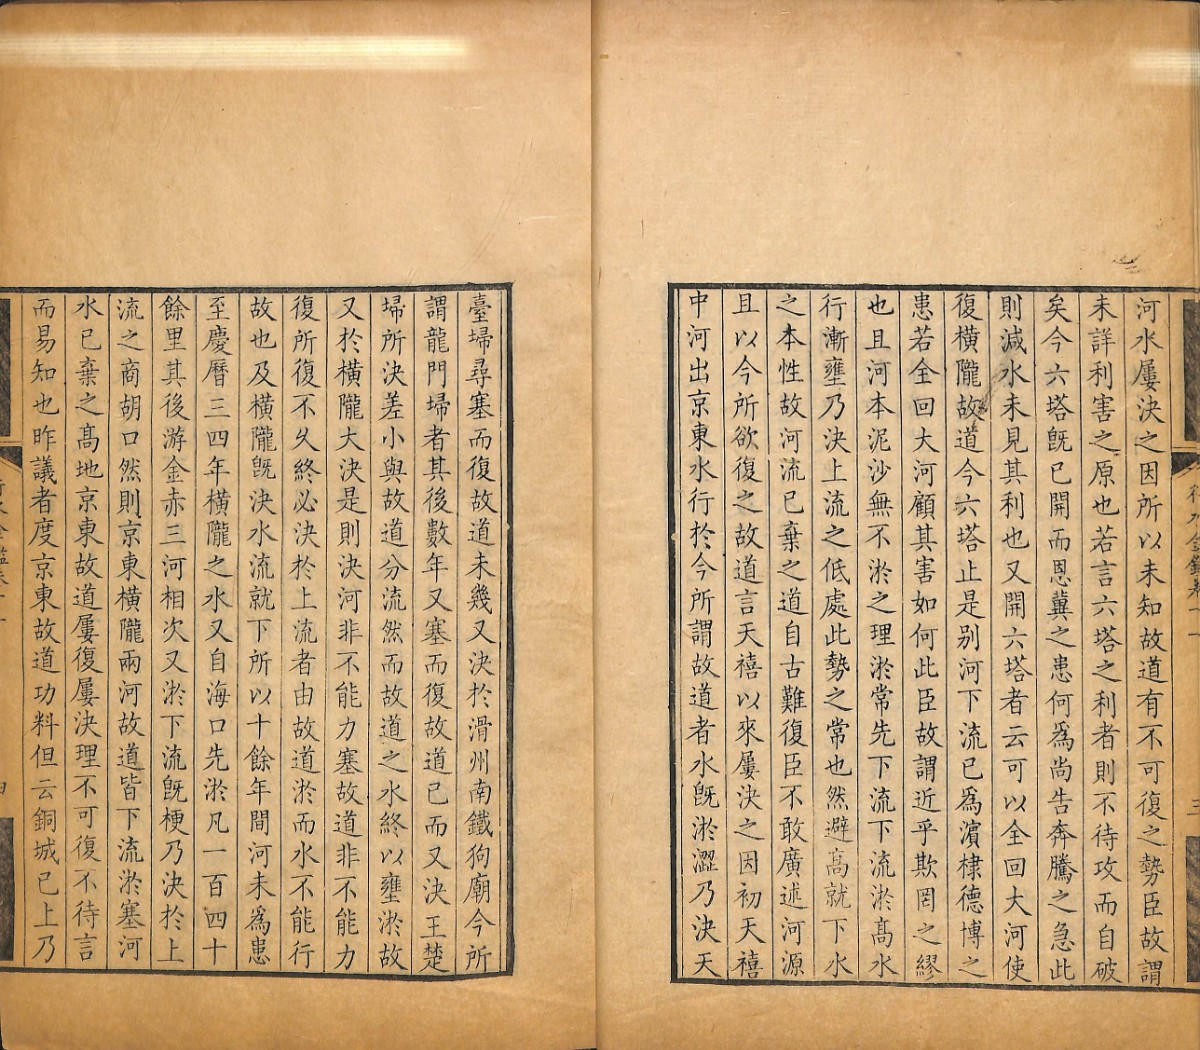 河水屢決之因所以未知故道有不可復之勢臣故謂
未詳利害之原也若言六塔之利者則不待攻而自破
矣今六塔既已開而恩冀之患何為尚告奔騰之急此
則減水未見其利也又開六塔者云可以全回大河使
復橫隴故道今六塔止是别河下流已為濱棣德博之
患若全回大河顧其害如何此臣故謂近乎欺罔之繆
也且河本泥沙無不淤之理淤常先下流下流淤高水
行漸壅乃決上流之低處此勢之常也然避高就下水
之本性故河流已棄之道自古難復臣不敢廣述河源
且以今所欲復之故道言天禧以來屢決之因初天禧
中河出京東水行於今所謂故道者水既淤澀乃決天
臺埽尋塞而復故道未幾又決於滑州南鐵狗廟今所
謂龍門埽者其後數年又塞而復故道已而又決王楚
埽所決差小與故道分流然而故道之水終以壅淤故
又於橫隴大決是則決河非不能力塞故道非不能力
復所復不久終必決於上流者由故道淤而水不能行
故也及橫隴既決水流就下所以十餘年間河未為患
至慶曆三四年橫隴之水又自海口先淤凡一百四十
餘里其後游金赤三河相次又淤下流既梗乃決於上
流之商胡口然則京東橫隴兩河故道皆下流淤塞河
水已棄之高地京東故道屢復屢決理不可復不待言
而易知也昨議者度京東故道功料但云銅城已上乃